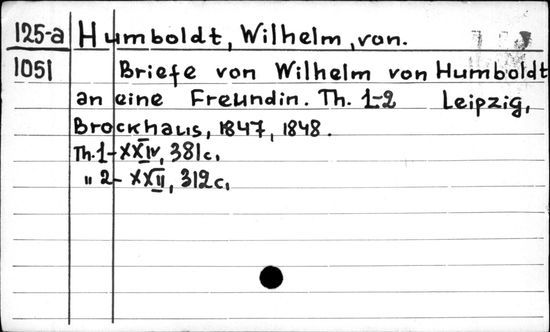 125-a Humboldt, Wilhelm, von.
1051 Briefe von Wilhelm von Humboldt
an eine Freundin. Th. 1-2 Leipzig,
Brockhaus, 1847, 1848.
Th. 1- XXIV, 381c.
" 2- XXII, 312c.